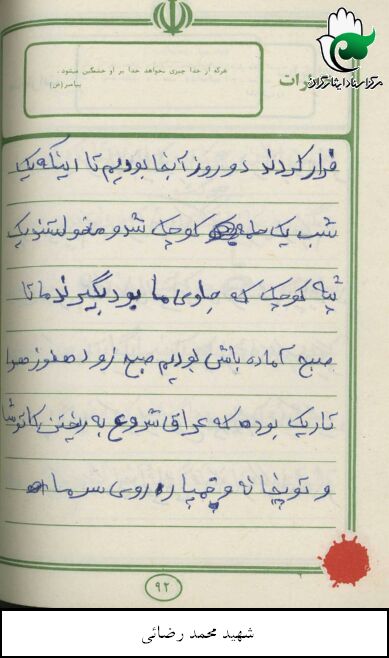 مرکز اسناد ایثارگران
هرکه از خدا چیزی نخواهد خدا بر او خشمگین میشود.
پیامبر (ص)
فرار کردند دو روز آنجا بودیم تا اینکه یک
شب یک حمله کوچک شد و میخواستند یک
تپه کوچک که جلوی ما بود بگیرند ما تا
صبح آماده باش بودیم صبح زود هنوز هوا
تاریک بود که عراق شروع به ریختن کاتوشا
و توپخانه و خمپاره روی سر ما
۹۲
شهید محمد رضائی